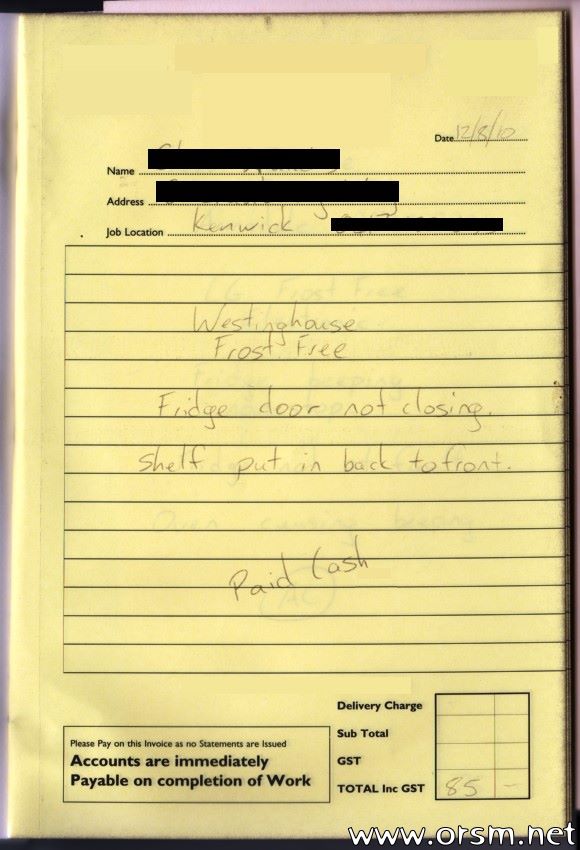 Date 12/8/10
Name
Address
Job Location Kenwick
Westinghouse
Frost Free
Fridge door not closing.
Shelf put in back to front.
Paid Cash
Delivery Charge
Sub Total
Please Pay on this Invoice as no Statements are Issued
GST
Accounts are immediately
Payable on completion of Work
TOTAL Inc GST 85 -
www.orsm.net